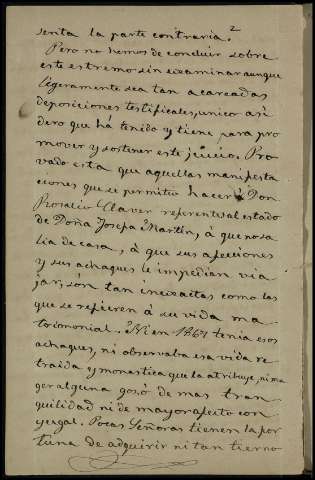 senta la parte contraria.2
Pero no hemos de concluir sobre
este estremo sin examinar aunque
ligeramente sea tan acareadas
deposiciones testificales, unico asi
dero que há tenido y tiene para pro
mover y sostener este juicio. Pro
vado esta que aquellas manifesta
ciones que se permitió hacer Don
Rosalio Claver referentes al estado
de Doña Josepa Martin, á que no sa
lia de casa, á que sus afecciones
y sus achaques le impedian via
jar, són tan inexactas como las
que se refieren á su vida ma
trimonial. Ni en 1867 tenia esos
achaques, ni observaba esa vida re
traida y monastica que la atribuye, ni mu
ger alguna gozó de mas tran
quilidad ni de mayor afecto con
yugal. Pocas Señoras tienen la for
tuna de adquirir ni tan tierno